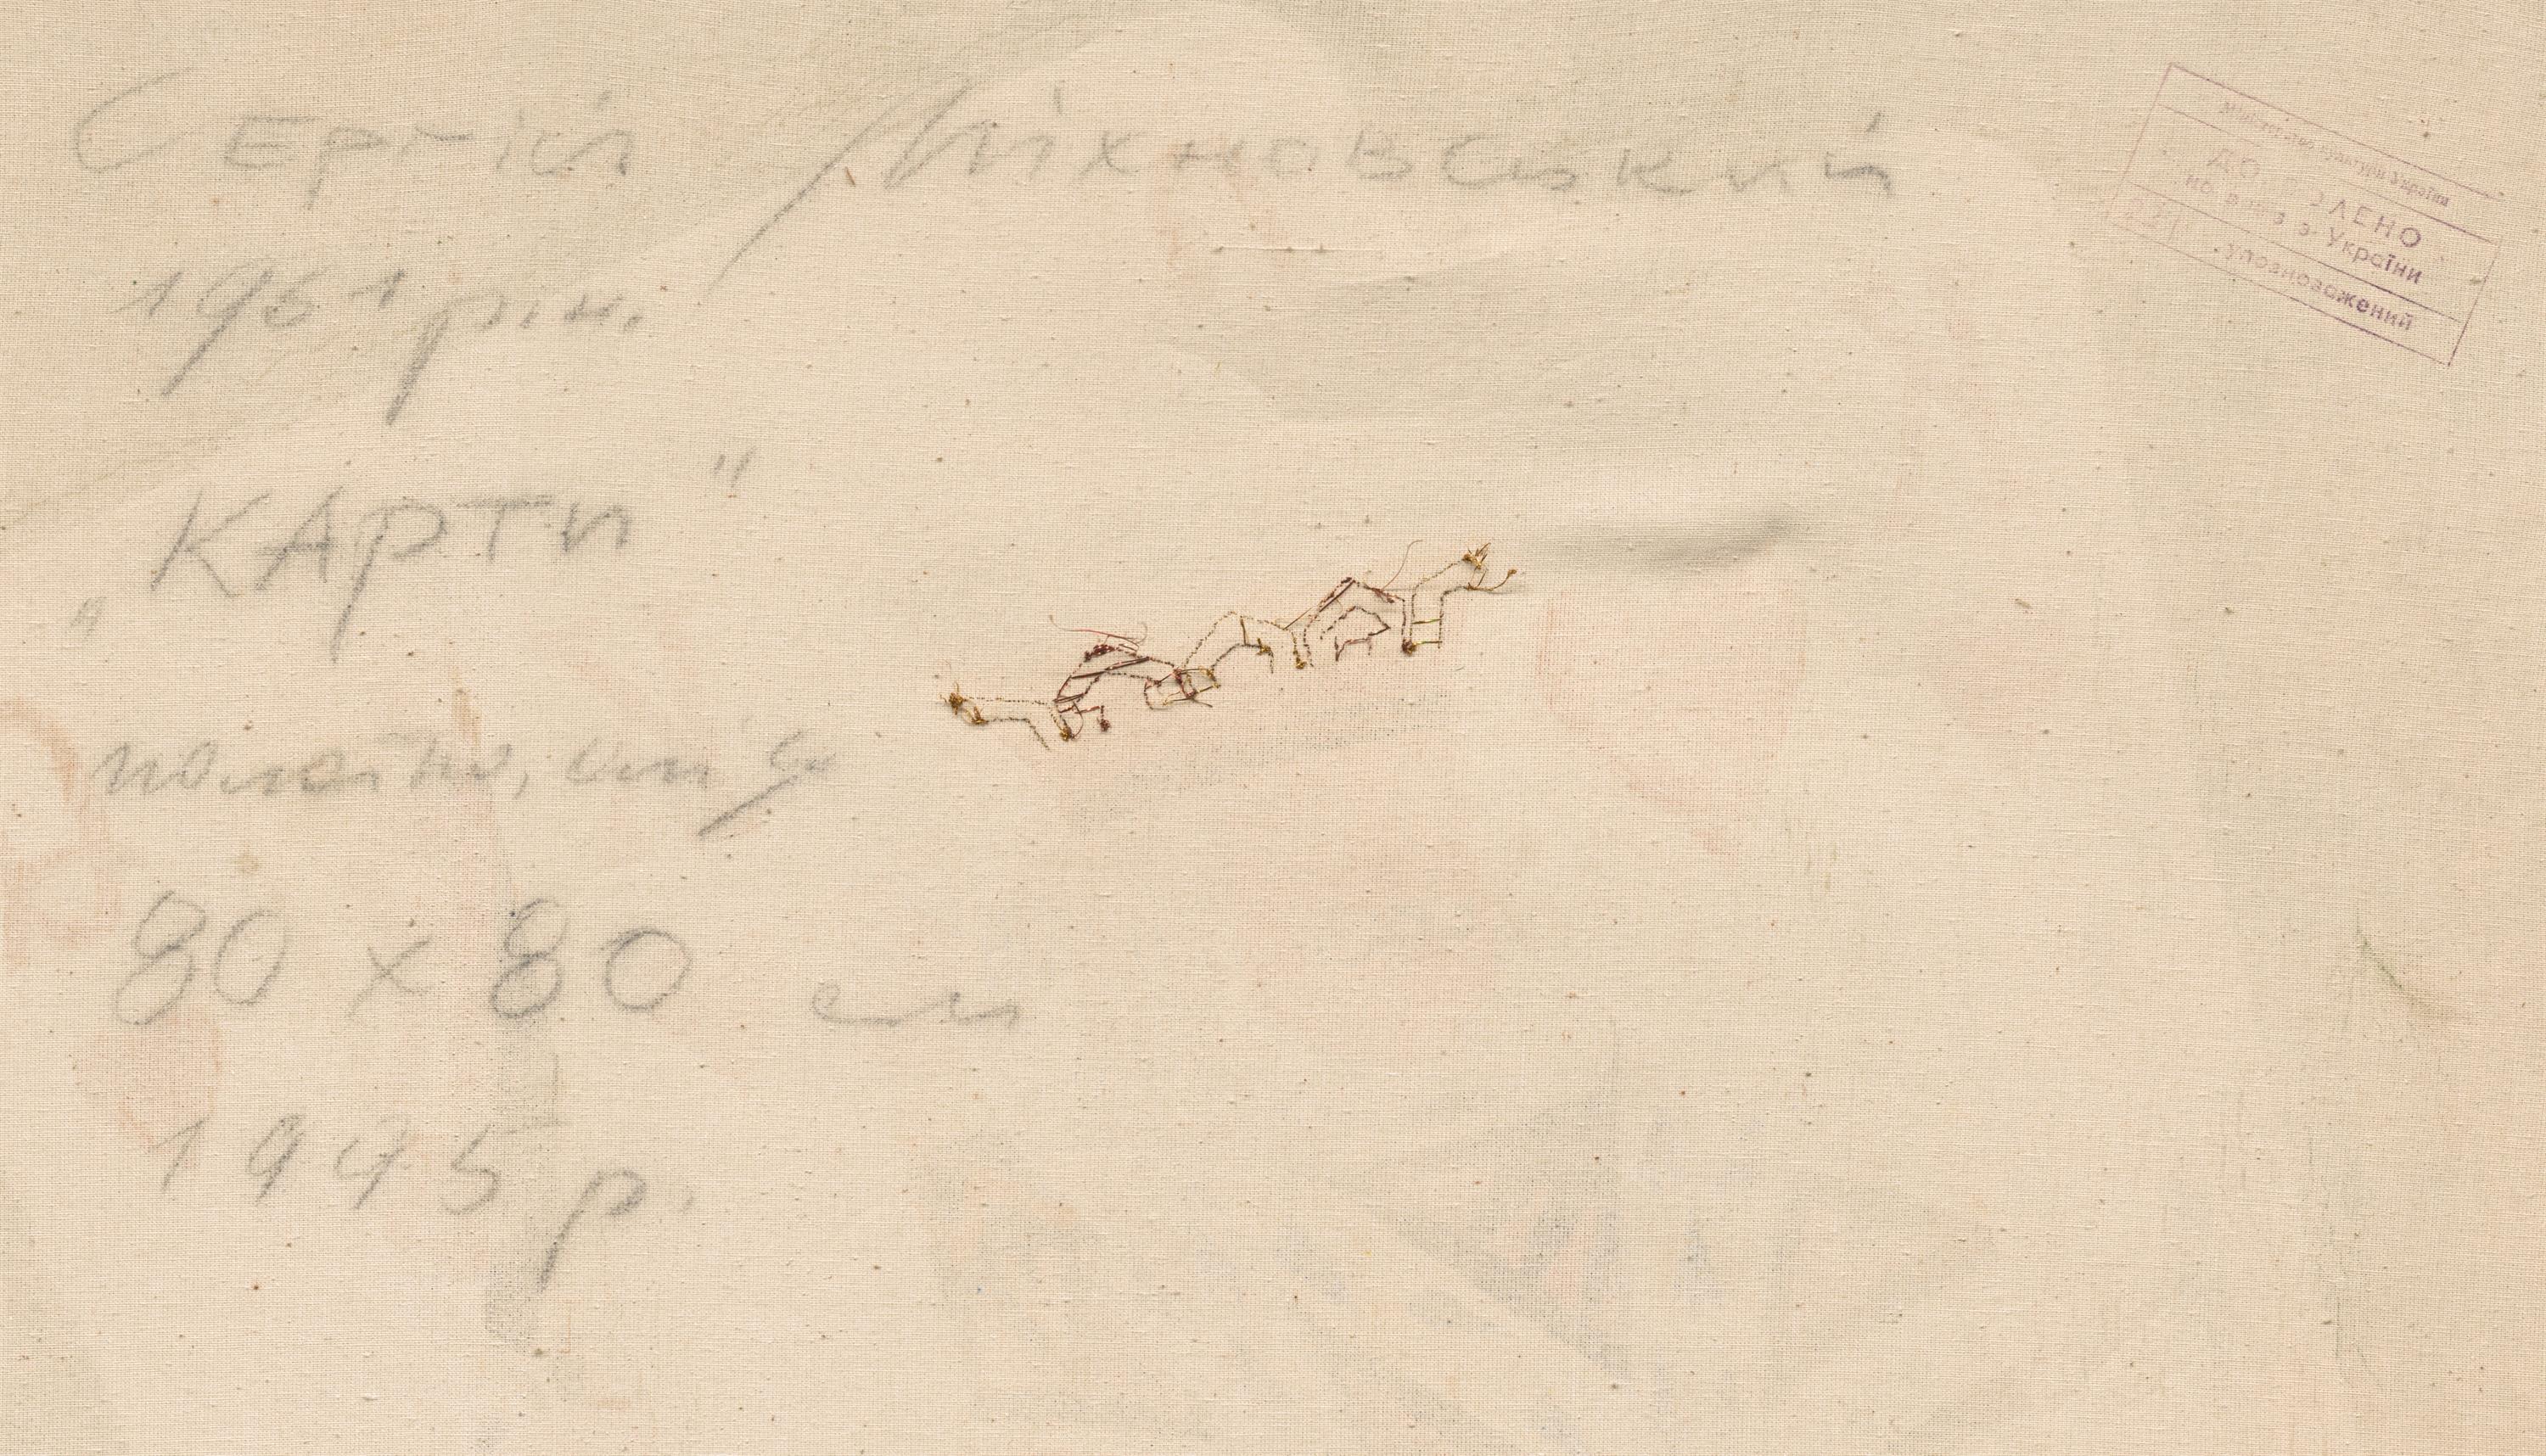 Сергій Міхновський
1961 р.н.
„КАРТИ"
полотно, олія
80 х 80 см
1995 р.
Міністерство культури України
ДОЗВОЛЕНО
на вивіз з України
Уповноважений